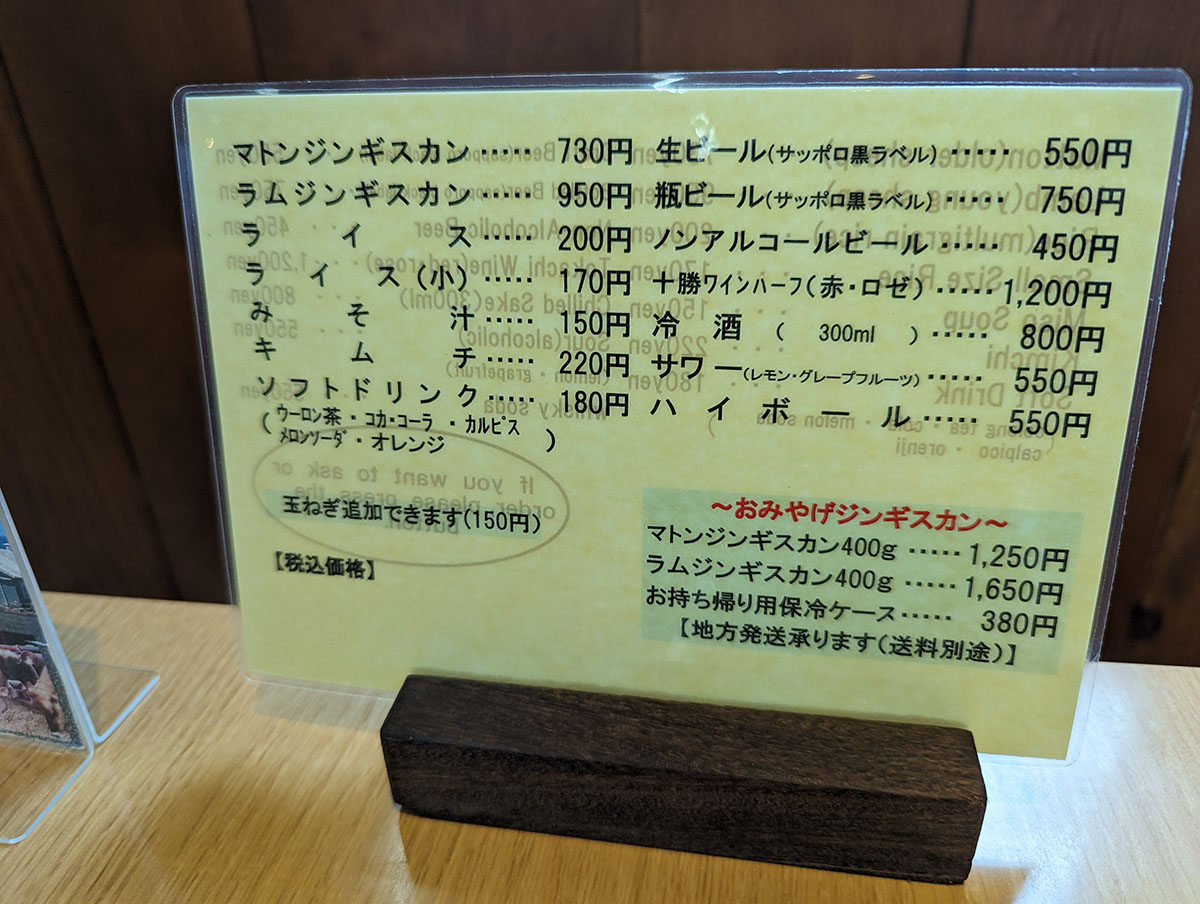 マトンジンギスカン ····· 730円
ラムジンギスカン ····· 950円
ライス ····· 200円
ライス(小) ····· 170円
みそ汁 ····· 150円
キムチ ····· 220円
ソフトドリンク ····· 180円
(ウーロン茶・コカ・コーラ・カルピス
メロンソーダ・オレンジ)
玉ねぎ追加できます(150円)
【税込価格】
生ビール(サッポロ黒ラベル) ····· 550円
瓶ビール(サッポロ黒ラベル) ····· 750円
ノンアルコールビール ····· 450円
十勝ワインハーフ(赤・ロゼ) ····· 1,200円
冷酒(300ml) ····· 800円
サワー(レモン・グレープフルーツ) ····· 550円
ハイボール ····· 550円
～おみやげジンギスカン～
マトンジンギスカン400g ····· 1,250円
ラムジンギスカン400g ····· 1,650円
お持ち帰り用保冷ケース ····· 380円
【地方発送承ります(送料別途)】